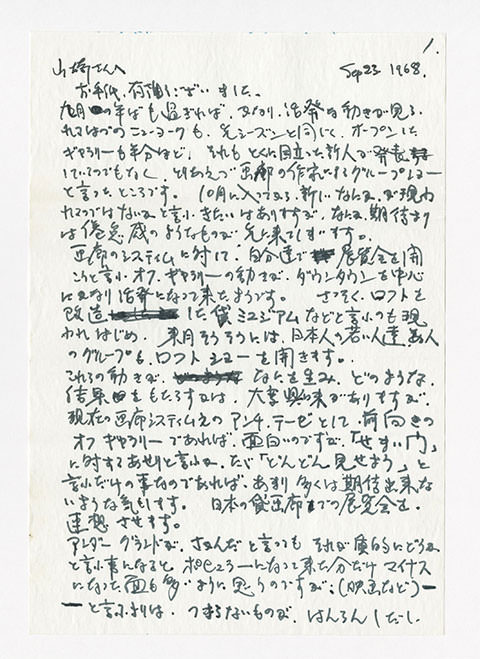 1.
山崎さんへ Sep 23 1968.
お手紙、有難うございました。
九月の半ばも過ぎれば、かなり、活発な動きが見ら
れるはずのニューヨークも、先シーズンと同じく、オープンした
ギャラリーも半分ほど、それも とくに目立った新人が発表
しているのでもなく、とりあえず画廊の作家によるグループショー
と言ったところです。 10月に入ってから、新しいなにか、が現わ
れるのではないかと言ふきたいはありますが、なにか期待より
は倦怠感のようなものが先に来てしまいます。
画廊のシスティムに対して、自分達で 展覧会を開
こうと言ふオフ、ギャラリーの動きが、ダウンタウンを中心
にかなり活発になって来たようです。 さっそく、ロフトを
改造 した貸ミュジアムなどと言ふのも現
われはじめ、来月そうそうには、日本人の若い人達、
のグループも、ロフト ショーを開きます。
これらの動きが、 なにを生み、どのような
結果をもたらすかは、大変興味がありますが、
現在の画廊システムえのアンチ、テーゼとして、前向きの
オフ ギャラリーであれば、面白いのですが、「せまい門」
に対するあせりと言ふか、ただ「どんどん見せよう」と
言ふだけの事なのであれば、あまり多くは期待出来な
いような気もします。 日本の貸画廊での展覧会を、
連想させます。
アンダーグランドが、さかんだと言っても それが質的にどうか
と言ふ事になると ポピュラーになって来た分だけ マイナス
になった面も多いように思うのですが、(映画など)
と言ふよりは、つまらないものが、はんらんしだし、